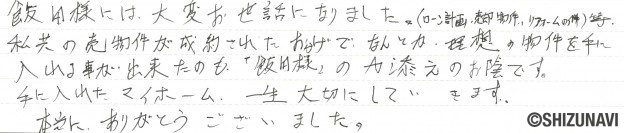 飯田様には、大変お世話になりました。(ローン計画、売却物件、リフォームの件)等、
私共の売物件が成約されたおかげで、なんとか、理想の物件を手に
入れる事が出来たのも、「飯田様」の力添えのお陰です。
手に入れたマイホーム、一生大切にしていきます。
本当に、ありがとうございました。
©SHIZUNAVI